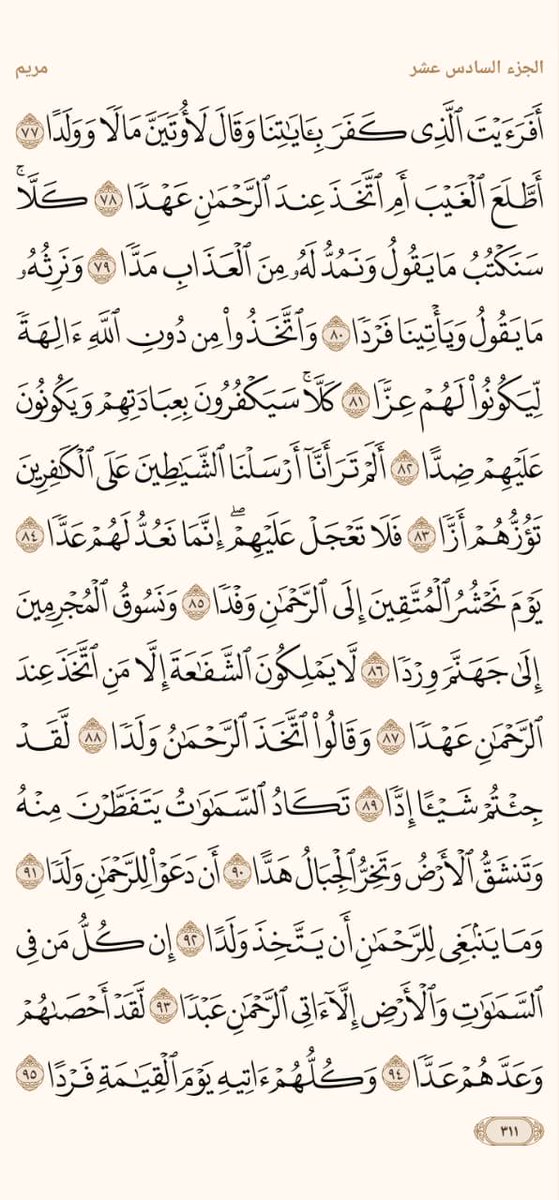 الجزء السادس عشر مريم
أَفَرَءَيْتَ ٱلَّذِى كَفَرَ بِـَٔايَـٰتِنَا وَقَالَ لَأُوتَيَنَّ مَالًا وَوَلَدًا ٧٧
أَطَّلَعَ ٱلْغَيْبَ أَمِ ٱتَّخَذَ عِندَ ٱلرَّحْمَـٰنِ عَهْدًا ٧٨ كَلَّا ۚ
سَنَكْتُبُ مَا يَقُولُ وَنَمُدُّ لَهُۥ مِنَ ٱلْعَذَابِ مَدًّا ٧٩ وَنَرِثُهُۥ
مَا يَقُولُ وَيَأْتِينَا فَرْدًا ٨٠ وَٱتَّخَذُوا۟ مِن دُونِ ٱللَّهِ ءَالِهَةً
لِّيَكُونُوا۟ لَهُمْ عِزًّا ٨١ كَلَّا ۚ سَيَكْفُرُونَ بِعِبَادَتِهِمْ وَيَكُونُونَ
عَلَيْهِمْ ضِدًّا ٨٢ أَلَمْ تَرَ أَنَّآ أَرْسَلْنَا ٱلشَّيَـٰطِينَ عَلَى ٱلْكَـٰفِرِينَ
تَؤُزُّهُمْ أَزًّا ٨٣ فَلَا تَعْجَلْ عَلَيْهِمْ ۖ إِنَّمَا نَعُدُّ لَهُمْ عَدًّا ٨٤
يَوْمَ نَحْشُرُ ٱلْمُتَّقِينَ إِلَى ٱلرَّحْمَـٰنِ وَفْدًا ٨٥ وَنَسُوقُ ٱلْمُجْرِمِينَ
إِلَىٰ جَهَنَّمَ وِرْدًا ٨٦ لَّا يَمْلِكُونَ ٱلشَّفَـٰعَةَ إِلَّا مَنِ ٱتَّخَذَ عِندَ
ٱلرَّحْمَـٰنِ عَهْدًا ٨٧ وَقَالُوا۟ ٱتَّخَذَ ٱلرَّحْمَـٰنُ وَلَدًا ٨٨ لَّقَدْ
جِئْتُمْ شَيْـًٔا إِدًّا ٨٩ تَكَادُ ٱلسَّمَـٰوَٰتُ يَتَفَطَّرْنَ مِنْهُ
وَتَنشَقُّ ٱلْأَرْضُ وَتَخِرُّ ٱلْجِبَالُ هَدًّا ٩٠ أَن دَعَوْا۟ لِلرَّحْمَـٰنِ وَلَدًا ٩١
وَمَا يَنۢبَغِى لِلرَّحْمَـٰنِ أَن يَتَّخِذَ وَلَدًا ٩٢ إِن كُلُّ مَن فِى
ٱلسَّمَـٰوَٰتِ وَٱلْأَرْضِ إِلَّآ ءَاتِى ٱلرَّحْمَـٰنِ عَبْدًا ٩٣ لَّقَدْ أَحْصَىٰهُمْ
وَعَدَّهُمْ عَدًّا ٩٤ وَكُلُّهُمْ ءَاتِيهِ يَوْمَ ٱلْقِيَـٰمَةِ فَرْدًا ٩٥
٣١١